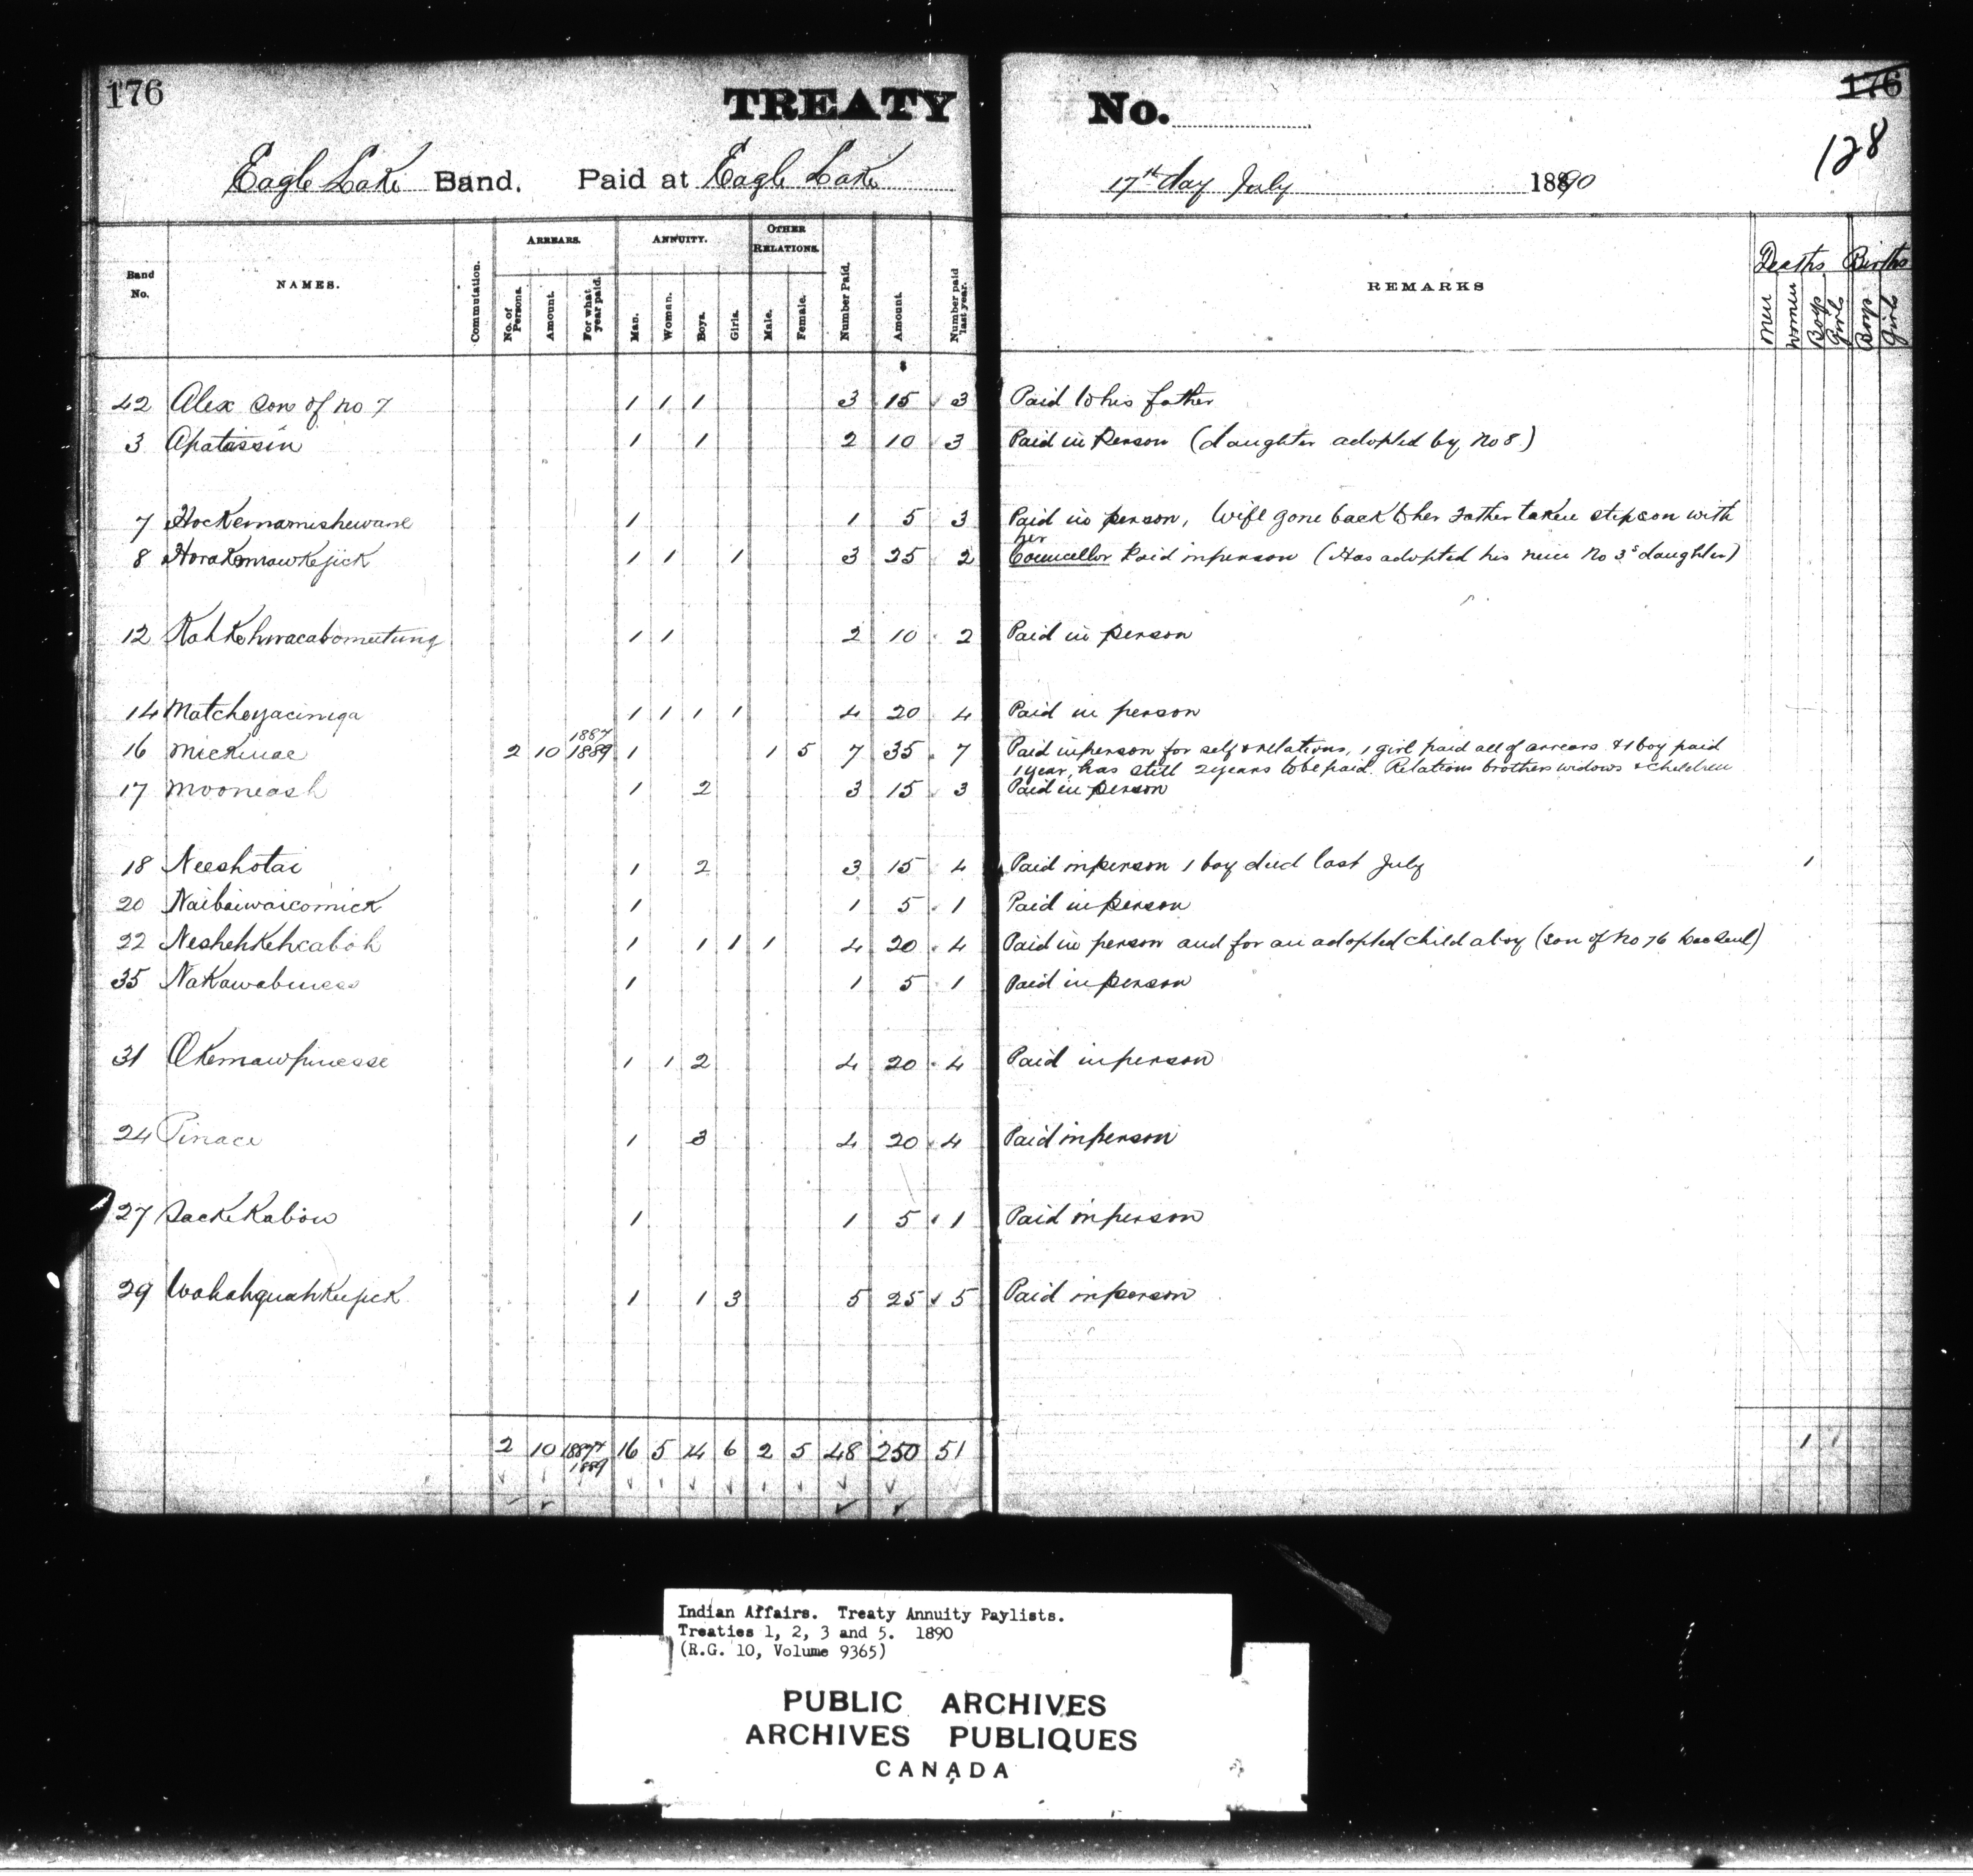 176
TREATY No.
176
128
Eagle Lake Band. Paid at Eagle Lake
17th day July 1890
Band No. NAMES. Commutation. ARREARS. No. of Persons. Amount. For what year paid. ANNUITY. Man. Woman. Boys. Girls. OTHER RELATIONS. Male. Female. Number Paid. Amount. Number paid last year. REMARKS Deaths Men Women Boys Girls Births Boys Girls
$
42 Alex son of no 7 1 1 1 3 15 3 Paid to his father
3 Apatassin 1 1 2 10 3 Paid in Person (daughter adopted by no 8)
7 Hockemamishewane 1 1 5 3 Paid in person, Wife gone back to her father taken stepson with
her
8 Horakemawkejick 1 1 1 3 25 2 Councellor Paid inperson (Has adopted his niece No 3s daughter)
12 KahKehwacabomeetung 1 1 2 10 2 Paid in person
14 Matcheyaciniga 1 1 1 1 4 20 4 Paid in person
1887
16 Mickinac 2 10 1889 1 1 5 7 35 7 Paid inperson for self & relations, 1 girl paid all of arrears & 1 boy paid
1 year, has still 2 years to be paid. Relations brothers widows & children
17 Mooneash 1 2 3 15 3 Paid in person
18 Neeshotai 1 2 3 15 4 Paid inperson 1 boy died last July 1
20 Naibaiwaicomick 1 1 5 1 Paid inperson
22 Neshehkehcaboh 1 1 1 1 4 20 4 Paid in person and for an adopted child a boy (son of No 76 )
35 Nakawabiness 1 1 5 1 Paid inperson
31 Okemawpinesse 1 1 2 4 20 4 Paid inperson
24 Pinace 1 3 4 20 4 Paid inperson
27 Sackekabow 1 1 5 1 Paid inperson
29 Wahahquahkeejick 1 1 3 5 25 5 Paid inperson
2 10 1887 16 5 14 6 2 5 48 250 51 1 1
1889
Indian Affairs. Treaty Annuity Paylists.
Treaties 1, 2, 3 and 5. 1890
(R.G. 10, Volume 9365)
PUBLIC ARCHIVES
ARCHIVES PUBLIQUES
CANADA